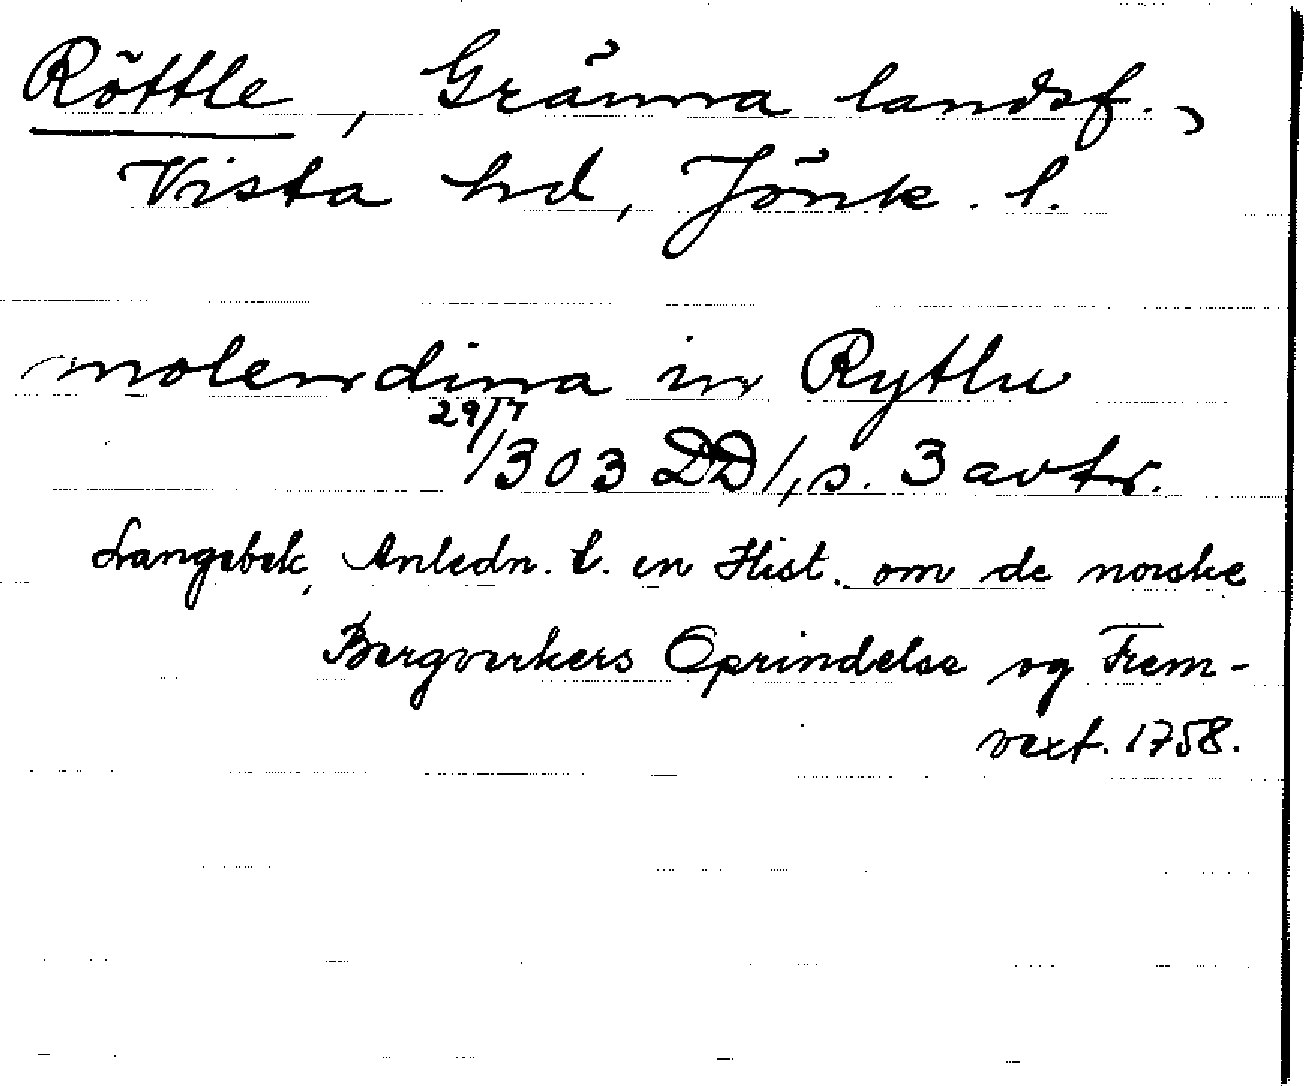 Röttle, Gränna landsf.,
Vista hd, Jönk. l.
molendina in Rytlu
29/7 1303 DD 1, s. 3 avtr.
Langebek, Anledn. t. en Hist. om de norske
Bergverkers Oprindelse og Frem-
vext. 1758.